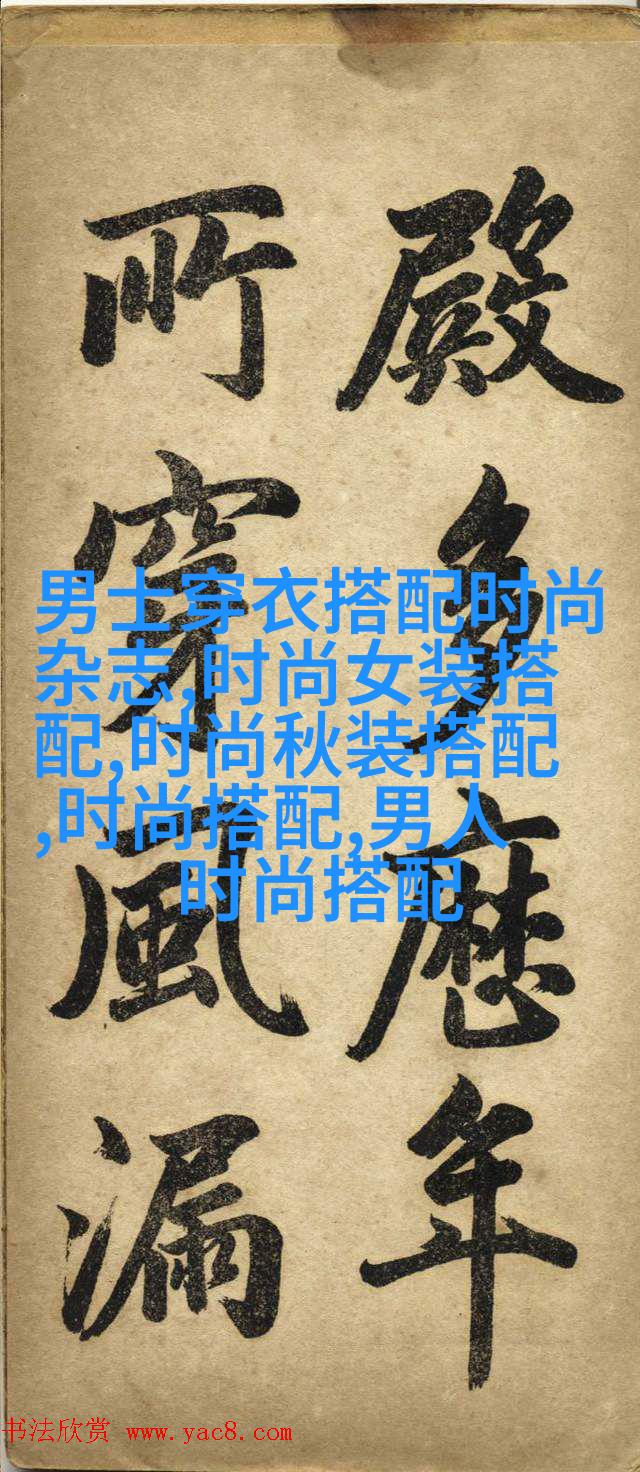 殿多歷年
所穿風漏
男士穿衣搭配时尚
杂志,时尚女装搭
配,时尚秋装搭配
,时尚搭配,男人
时尚搭配
书法欣赏 www.yac8.com